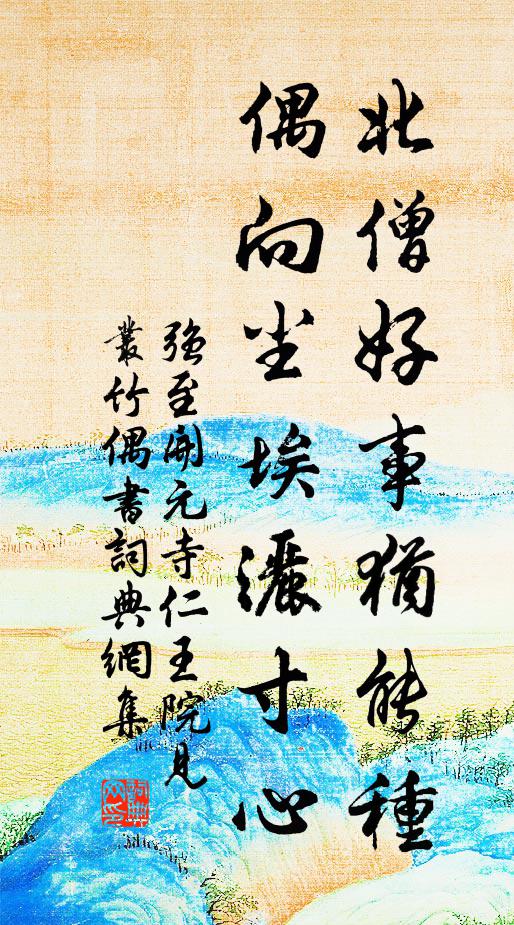 北僧好事猶能種
偶向尘埃灑寸心
強至開元寺仁王院見
叢竹偶書詞典網集